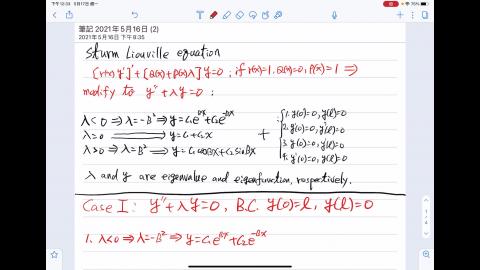 下午12:33 5月17日 週一
76%
筆記 2021年5月16日 (2)
2021年5月16日 下午8:35
Sturm Liouville equation
[r(x)y']' + [Q(x)+P(x)λ]y=0 ; if r(x)=1, Q(x)=0, P(x)=1 ⇒
modify to y''+λy=0 :
λ<0 ⇒ λ=-B² ⇒ y=C₁e^{Bx}+C₂e^{-Bx}
λ=0 ⟹ y=C₁+C₂x
λ>0 ⇒ λ=B² ⟹ y=C₁cosBx+C₂sinBx
+
1. y(0)=0, y(l)=0
2. y'(0)=0, y'(l)=0
3. y(0)=0, y'(l)=0
4. y'(0)=0, y(l)=0
λ and y are eigenvalue and eigenfunction, respectively.
Case I : y''+λy=0, B.C. y(0)=l, y(l)=0
1. λ<0 ⇒ λ=-B² ⇒ y=C₁e^{Bx}+C₂e^{-Bx}